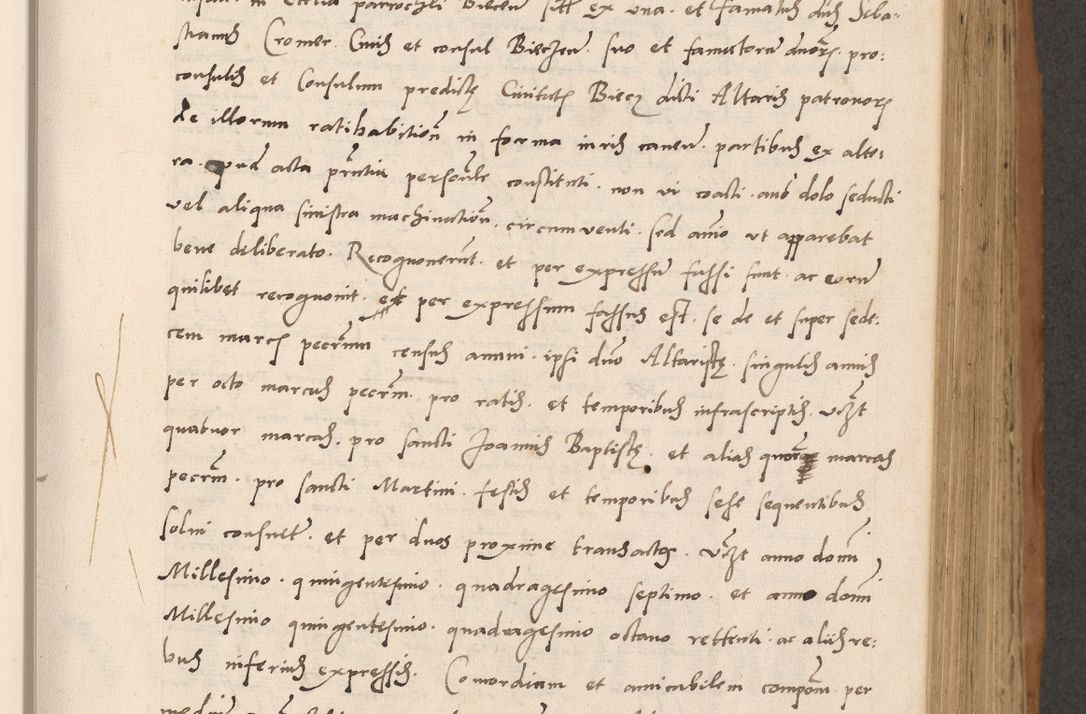 in Ecclesia parrochli Biecen sitt ex una. et famatus dns Seba-
stianus Cromer. Civis et consul Bieczen. suo et famatorum dnorum pro:
consulis et Consulum predictę Civitatis Biecz dicti Altaris patronorum
de illorum ratihabitione in forma iuris caven. partibus ex alte:
ra. apud acta pntia personle constituti. non vi coacti. aut dolo seducti
vel aliqua sinistra machinatione. circumventi. sed animo ut apparebat
bene deliberato. Recognoverunt. et per expressum fassi sunt. ac eorum
quilibet recognovit. et per expressum fassus est. se de et super sede:
cem marcis pecrum census annui. ipsi dno Altaristę. singulis annis
per octo marcas pecrm. pro ratis. et temporibus infrascriptis. vczt
quatuor marcas. pro sancti Joannis Baptistę. et alias marcas
pecrm. pro sancti Martini. festis et temporibus sese sequentibus
solvi consuet. et per duos proxime transactos. vczt anno domi
Millesimo. quingentesimo. quadragesimo septimo. et anno domi
Millesimo quingentesimo. quadragesimo octavo retenti. ac aliis re:
bus inferius expressis. Concordiam et amicabilem compom. per